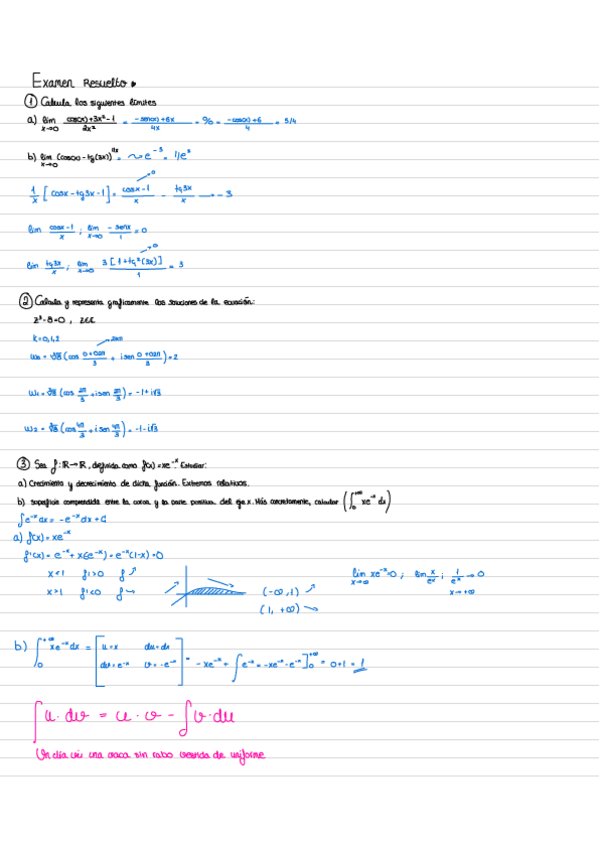 Examen Resuelto.
① Calcula los siguientes límites
a) lim x→0 (cos(x)+3x²-1)/(2x²) = (-sen(x)+6x)/(4x) = 0/0 = (-cos(x)+6)/4 = 5/4
b) lim x→0 (cos(x)-tg(3x))^(1/x) = ~ e^-3 = 1/e³
1/x [cosx-tg3x-1] = (cosx-1)/x - tg3x/x → -3
lim (cosx-1)/x ; lim x→0 (-senx)/1 = 0
lim tg3x/x ; lim x→0 3[1+tg²(3x)]/1 = 3
② Calcula y representa gráficamente las soluciones de la ecuación:
z³-8=0, z∈ℂ
k=0,1,2
w₀ = ∛8 (cos (0+02π)/3 + i sen (0+02π)/3) = 2
w₁ = ∛8 (cos 2π/3 + i sen 2π/3) = -1+i√3
w₂ = ∛8 (cos 4π/3 + i sen 4π/3) = -1-i√3
③ Sea f: ℝ→ℝ, definida como f(x)=xe^-x. Estudiar:
a) Crecimiento y decrecimiento de dicha función. Extremos relativos.
b) Superficie comprendida entre la curva y la parte positiva del eje x. Más concretamente, calcular (∫₀^+∞ xe^-x dx)
∫e^-x dx = -e^-x dx + C
a) f(x) = xe^-x
f'(x) = e^-x + x(-e^-x) = e^-x(1-x) = 0
x<1 f'>0 f ↗ (-∞,1) ↗ lim x→∞ xe^-x=0 ; lim x/e^x ; 1/e^x → 0 x→+∞
x>1 f'<0 f ↘ (1,+∞) ↘
b) ∫₀^+∞ xe^-x dx = [u=x du=dx dv=e^-x v=-e^-x] = -xe^-x + ∫e^-x = -xe^-x-e^-x]₀^+∞ = 0+1 = 1
∫u·dv = u·v - ∫v·du
Un día vi una vaca sin rabo vestida de uniforme